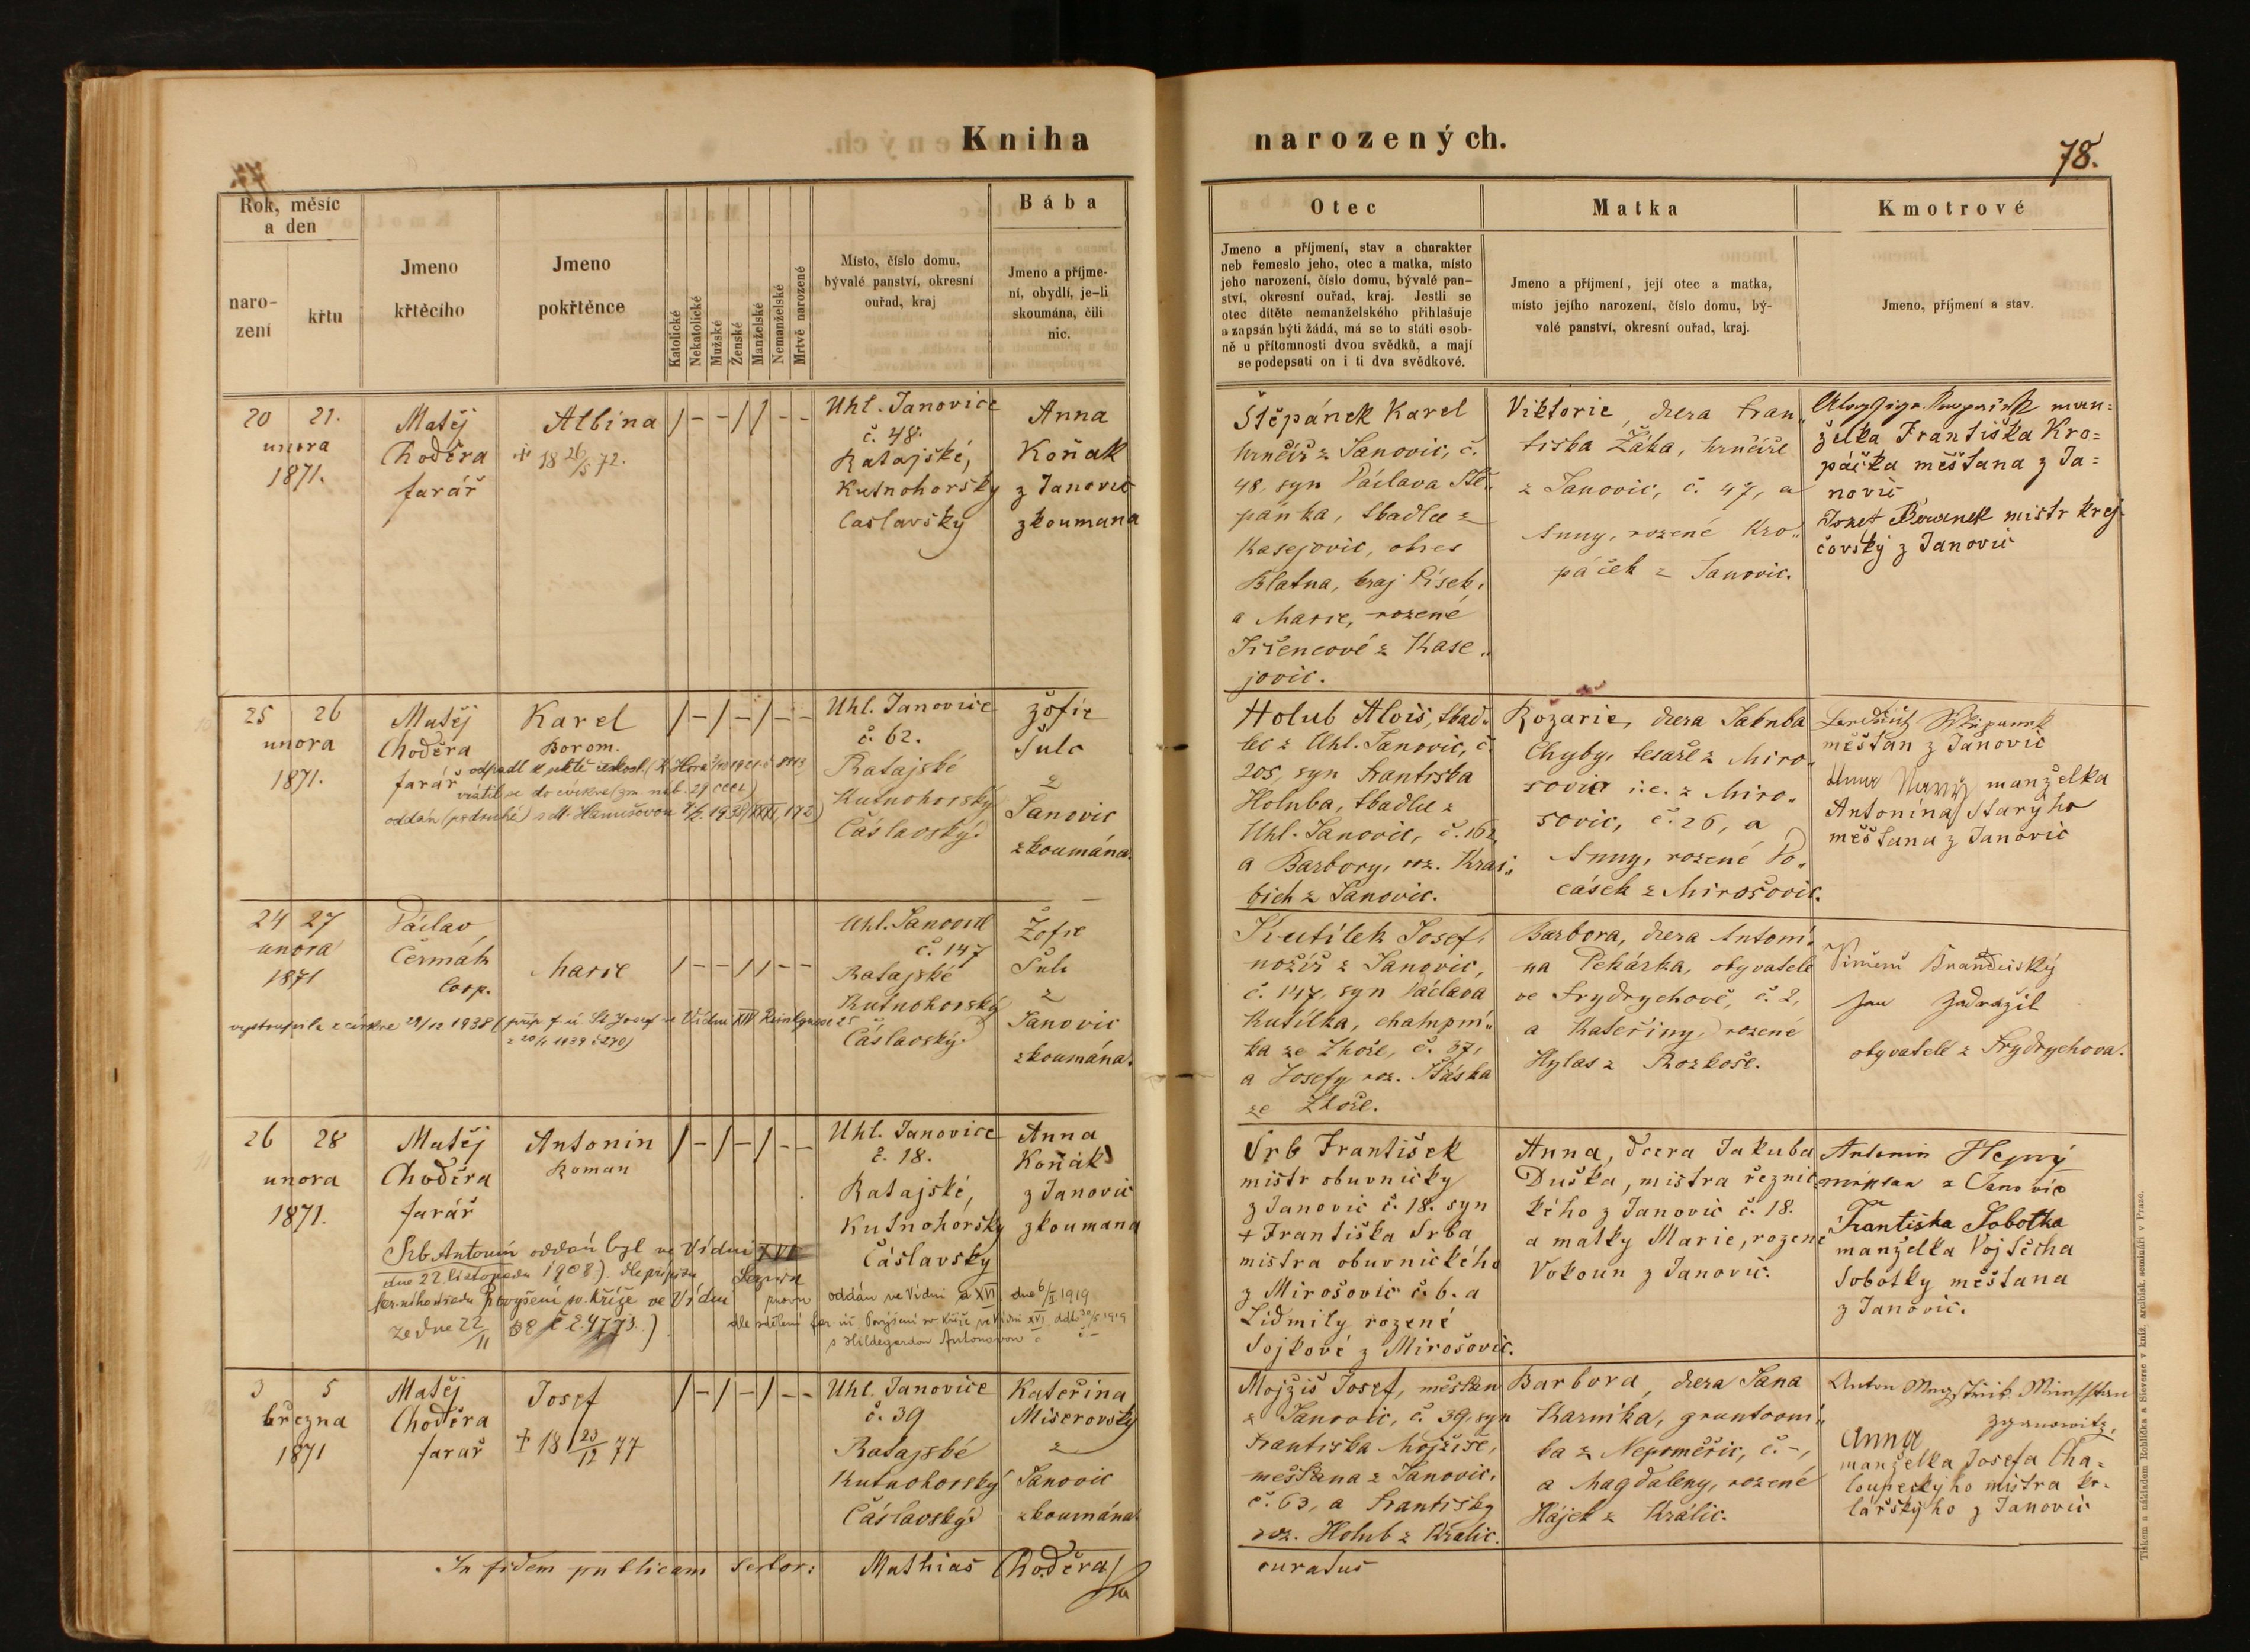 Kniha narozených.
78.
Rok, měsíc
a den
naro-
zení
křtu
Jmeno
křtěcího
Jmeno
pokřtěnce
Katolické
Nekatolické
Mužské
Ženské
Manželské
Nemanželské
Mrtvě narozené
Místo, číslo domu,
bývalé panství, okresní
ouřad, kraj
Bába
Jmeno a příjme-
ní, obydlí, je-li
skoumána, čili
nic.
Otec
Jmeno a příjmení, stav a charakter
neb řemeslo jeho, otec a matka, místo
jeho narození, číslo domu, bývalé pan-
ství, okresní ouřad, kraj. Jestli se
otec dítěte nemanželského přihlašuje
a zapsán býti žádá, má se to státi osob-
ně u přítomnosti dvou svědků, a mají
se podepsati on i ti dva svědkové.
Matka
Jmeno a příjmení, její otec a matka,
místo jejího narození, číslo domu, bý-
valé panství, okresní ouřad, kraj.
Kmotrové
Jmeno, příjmení a stav.
20 21.
unora
1871.
Matěj
Choděra
farář
Albína
+ 18 26/5 72.
/ - - / / - -
Uhl. Janovice
č. 48.
Ratajské,
Kutnohorsky
Caslavský
Anna
Koňak
z Janovic
zkoumana
Štěpánek Karel
hrnčíř z Janovic, č.
48, syn Václava Ště„
pánka, tkadlce z
Kasejovic, okres
Blatna, kraj Písek,
a Marie, rozené
z Kase„
jovic.
Viktorie, dcera Fran„
tiska Žáka, hrnčíře
z Janovic, č. 47, a
Anny, rozené Kro„
páček z Janovic.
man=
želka Františka Kro=
páčka měšťana z Ja=
novic
Josef mistr krej-
čovský z Janovic
25 26
unora
1871.
Matěj
Choděra
farář
Karel
Borom.
odpadl
vrátil se do církve
oddán (podruhé) s M. Hanušovou
/ - / - / - -
Uhl. Janovice
č. 62.
Ratajské
Kutnohorský
Čáslavský.
Žofie
Šulc
z
Janovic
zkoumána.
Holub Alois, tkad„
lec z Uhl. Janovic, č.
205, syn Františka
Holuba, tkadlce z
Uhl. Janovic, č. 162
a Barbory, roz. Kraj„
bich z Janovic.
Rozarie, dcera Jakuba
Chyby, tesaře z Miro„
sovic i.e. z Miro„
sovic, č. 26, a
Anny, rozené Po„
cásek z Mirošovic.
měštan z Janovic
manželka
Antonína Starýho
měštana z Janovic
24 27
unora
1871
Václav
Čermák
Coop.
Marie
/ - - / / - -
vystoupila z církve 29/12 1938
Uhl. Janovice
č. 147
Ratajské
Kutnohorský
Čáslavský.
Žofie
Šulc
z
Janovic
zkoumána.
Kutílek Josef,
nožíř z Janovic,
č. 147, syn Václava
Kutílka, chalupní„
ka ze Zhoře, č. 37,
a Josefy roz.
ze Zhoře.
Barbora, dcera Antoní„
na Pekárka, obyvatele
ve Frydrychově, č. 2,
a Kateřiny, rozené
Hylas z Rozkoše.
Brandejský
Jan Zadražil
obyvatelé z Frydrychova.
26 28
unora
1871.
Matěj
Choděra
farář
Antonin
Roman
/ - / - / - -
Uhl. Janovice
č. 18.
Ratajské,
Kutnohorsky
Čáslavsky
Anna
Koňak
z Janovic
zkoumana
Srb Antonin oddán byl ve Vídni XVI
dne 22. listopadu 1908.) dle přípisu
far. úřadu Povyšení sv. kříže ve Vídni
ze dne 22/11 08 č 2.4773.)
oddán ve Vídni XVI, dne 6/II 1919
dle sdělení far. úř. Povýšení sv. Kříže ve Vídni XVI, ddto 30/5 1919
s Hildegardou Antonovou
Srb František
mistr obuvnicky
z Janovic č. 18. syn
+ Františka Srba
mistra obuvnického
z Mirošovic č. 6. a
Lidmily rozené
Sojkové z Mirošovic.
Anna, dcera Jakuba
Duška, mistra řeznic
kého z Janovic č. 18.
a matky Marie, rozené
Vokoun z Janovic.
Antonin
z Janovic
Františka Sobotka
manželka Vojtěcha
Sobotky měštana
z Janovic.
3 5
března
1871
Matěj
Choděra
farář
Josef
+ 18 23/12 77
/ - / - / - -
Uhl. Janovice
č. 39
Ratajské
Kutnohorský
Čáslavský.
Kateřina
Miserovsky
z
Janovic
zkoumána.
Mojžíš Josef, měštan
z Janovic, č. 39, syn
Františka Mojžíše,
meštana z Janovic,
č. 63, a Františky
roz. Holub z Králic.
Barbora, dcera Jana
Karníka, gruntovní„
ka z Nepoměřic, č. -,
a Magdaleny, rozené
Hájek z Králic.
Anton
Anna
manželka Josefa Cha=
loupeckýho mistra ko-
lářskýho z Janovic
In fidem publicam Mathias Choděra
curatus
Tiskem a nákladem Rohlíčka a Sieverse v kníž. arcibisk. semináři v Praze.